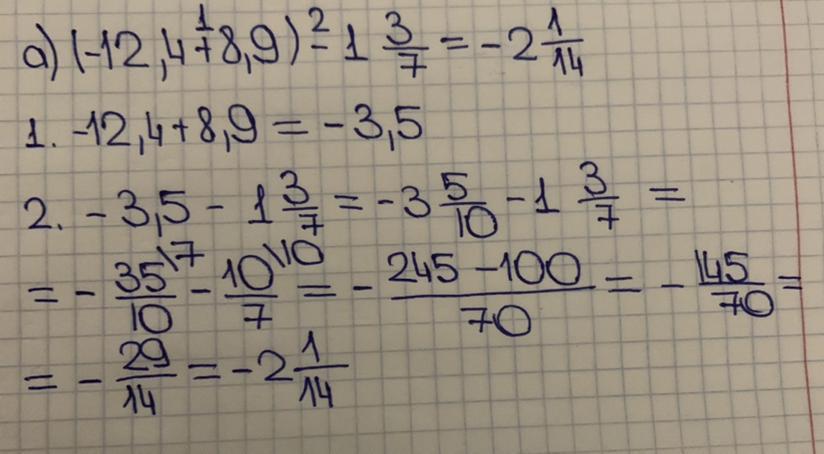 а) (-12,4 +¹ 8,9) -² 1 3/7 = -2 1/14
1. -12,4+8,9 = -3,5
2. -3,5 - 1 3/7 = -3 5/10 - 1 3/7 =
= - 35\7/10 - 10\10/7 = - 245-100/70 = - 145/70 =
= - 29/14 = -2 1/14